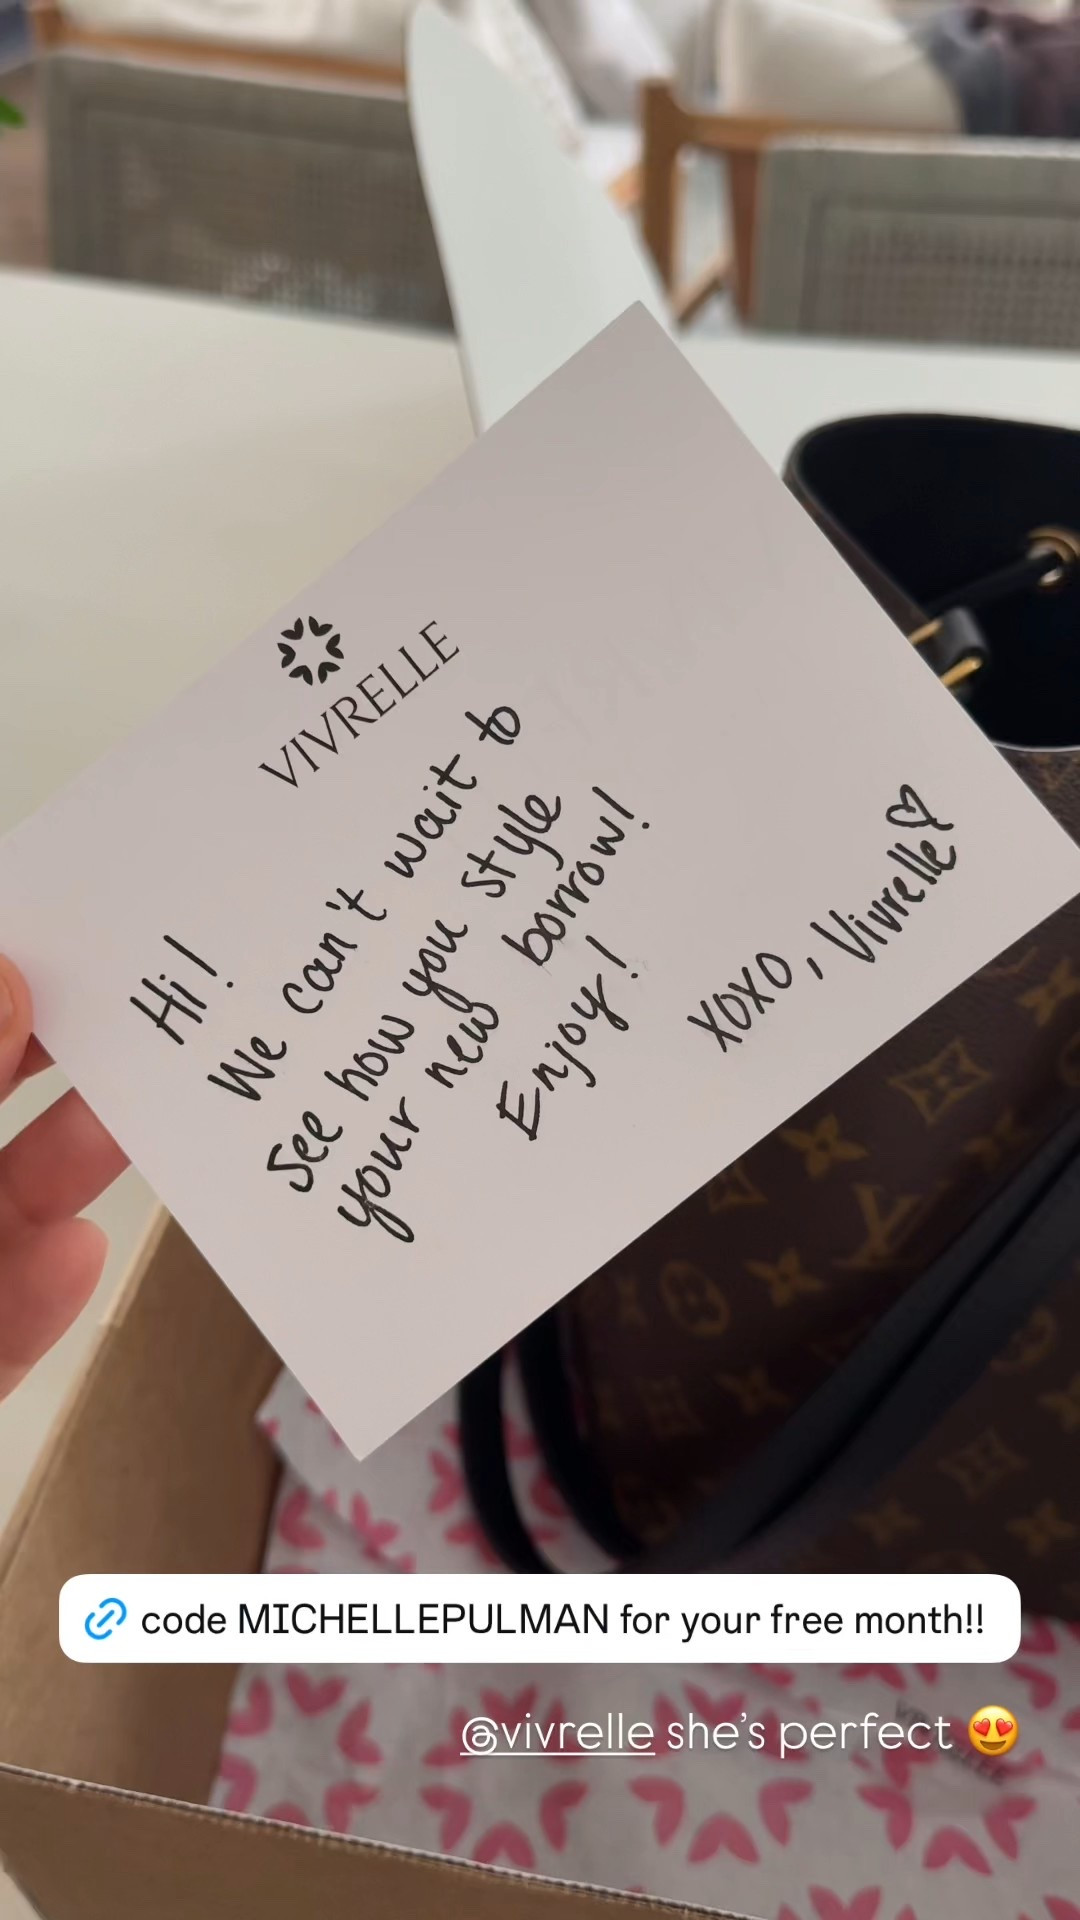 VIVRELLE
Hi!
We can't wait to
see how you style
your new borrow!
Enjoy!
XOXO, Vivrelle♡
code MICHELLEPULMAN for your free month!!
@vivrelle she's perfect 😍